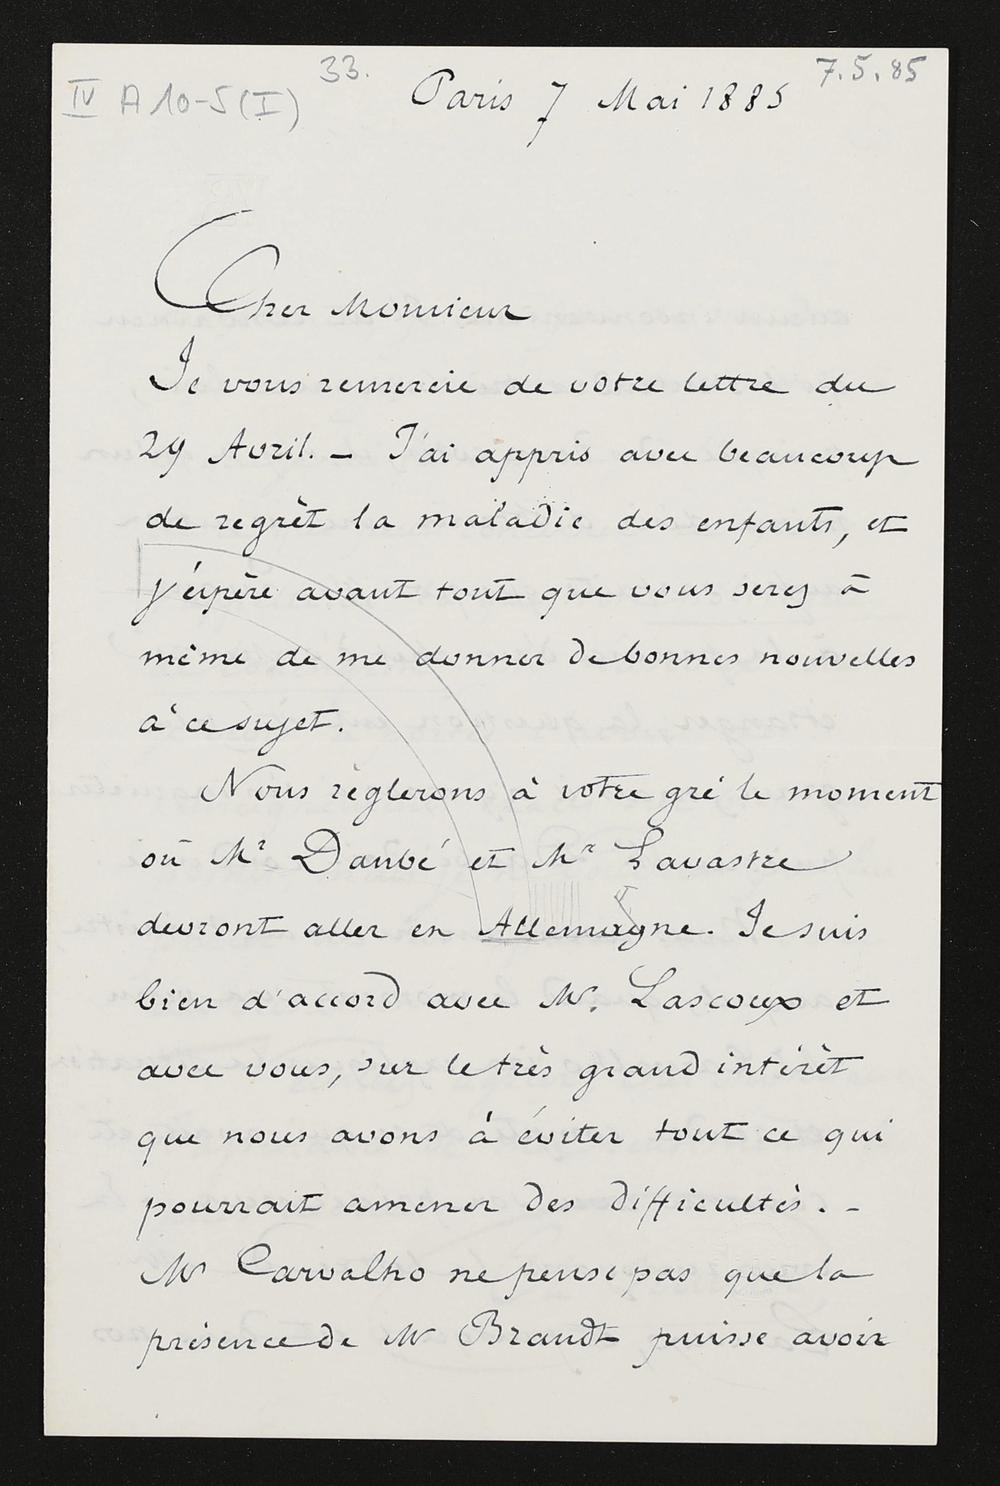 33.
7.5.85
IV A 10-5 (I)
Paris 7 Mai 1885
Cher Monsieur
Je vous remercie de votre lettre du
29 Avril. — J'ai appris avec beaucoup
de regrèt la maladie des enfants, et
j'éspère avant tout que vous serez à
même de me donner de bonnes nouvelles
à ce sujet.
Nous règlerons à votre gré le moment
où Mr Danbé et Mr Lavastre
devront aller en Allemagne. Je suis
bien d'accord avec Mr. Lascoux et
avec vous, sur le très grand intérêt
que nous avons à éviter tout ce qui
pourrait amener des difficultés. —
Mr Carvalho ne pense pas que la
présence de Mr Brandt puisse avoir